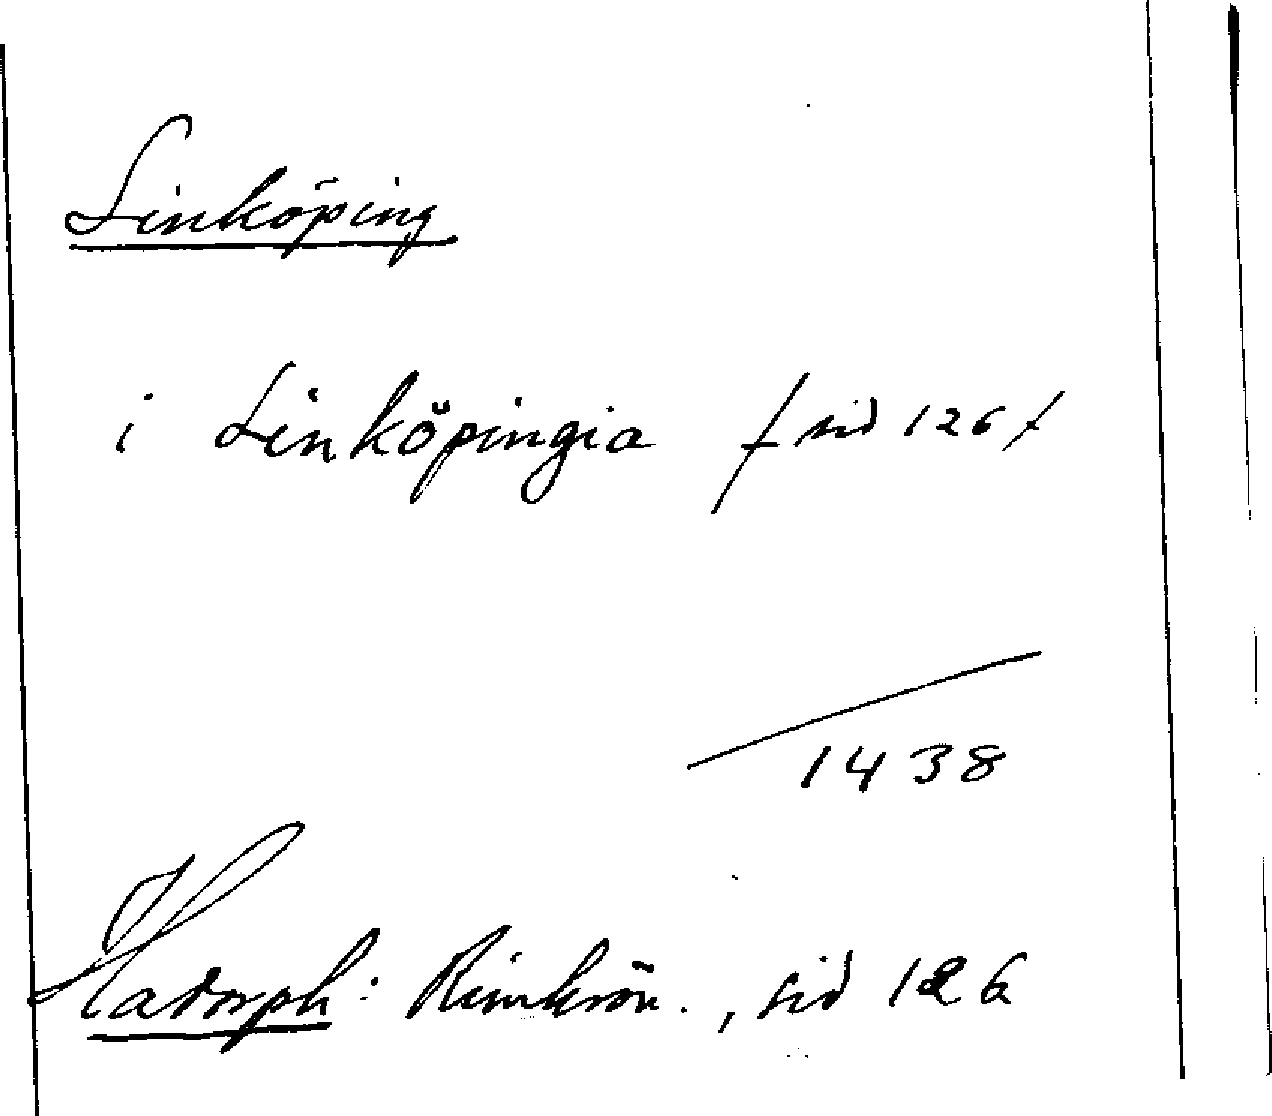 Linköping
i Linköpingia / sid 126 /
1438
Hadorph: Rimkrön., sid 126